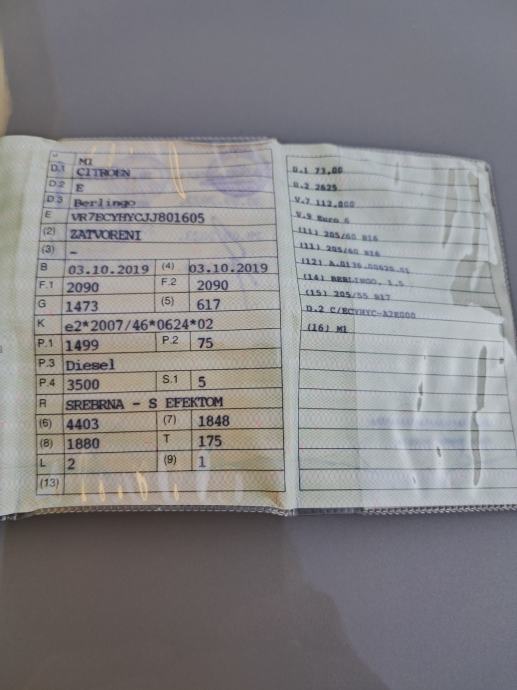 J M1
D.1 CITROEN
D.2 E
D.3 Berlingo
E VR7ECYHYCJJ801605
(2) ZATVORENI
(3) -
B 03.10.2019 (4) 03.10.2019
F.1 2090 F.2 2090
G 1473 (5) 617
K e2*2007/46*0624*02
P.1 1499 P.2 75
P.3 Diesel
P.4 3500 S.1 5
R SREBRNA - S EFEKTOM
(6) 4403 (7) 1848
(8) 1880 T 175
L 2 (9) 1
(13)
U.1 73,00
U.2 2625
V.7 112,000
V.9 Euro 6
(11) 205/60 R16
(11) 205/60 R16
(12)
(14) BERLINGO, 1.5
(15) 205/55 R17
D.2 C/ECYHYC-A2E000
(16) M1